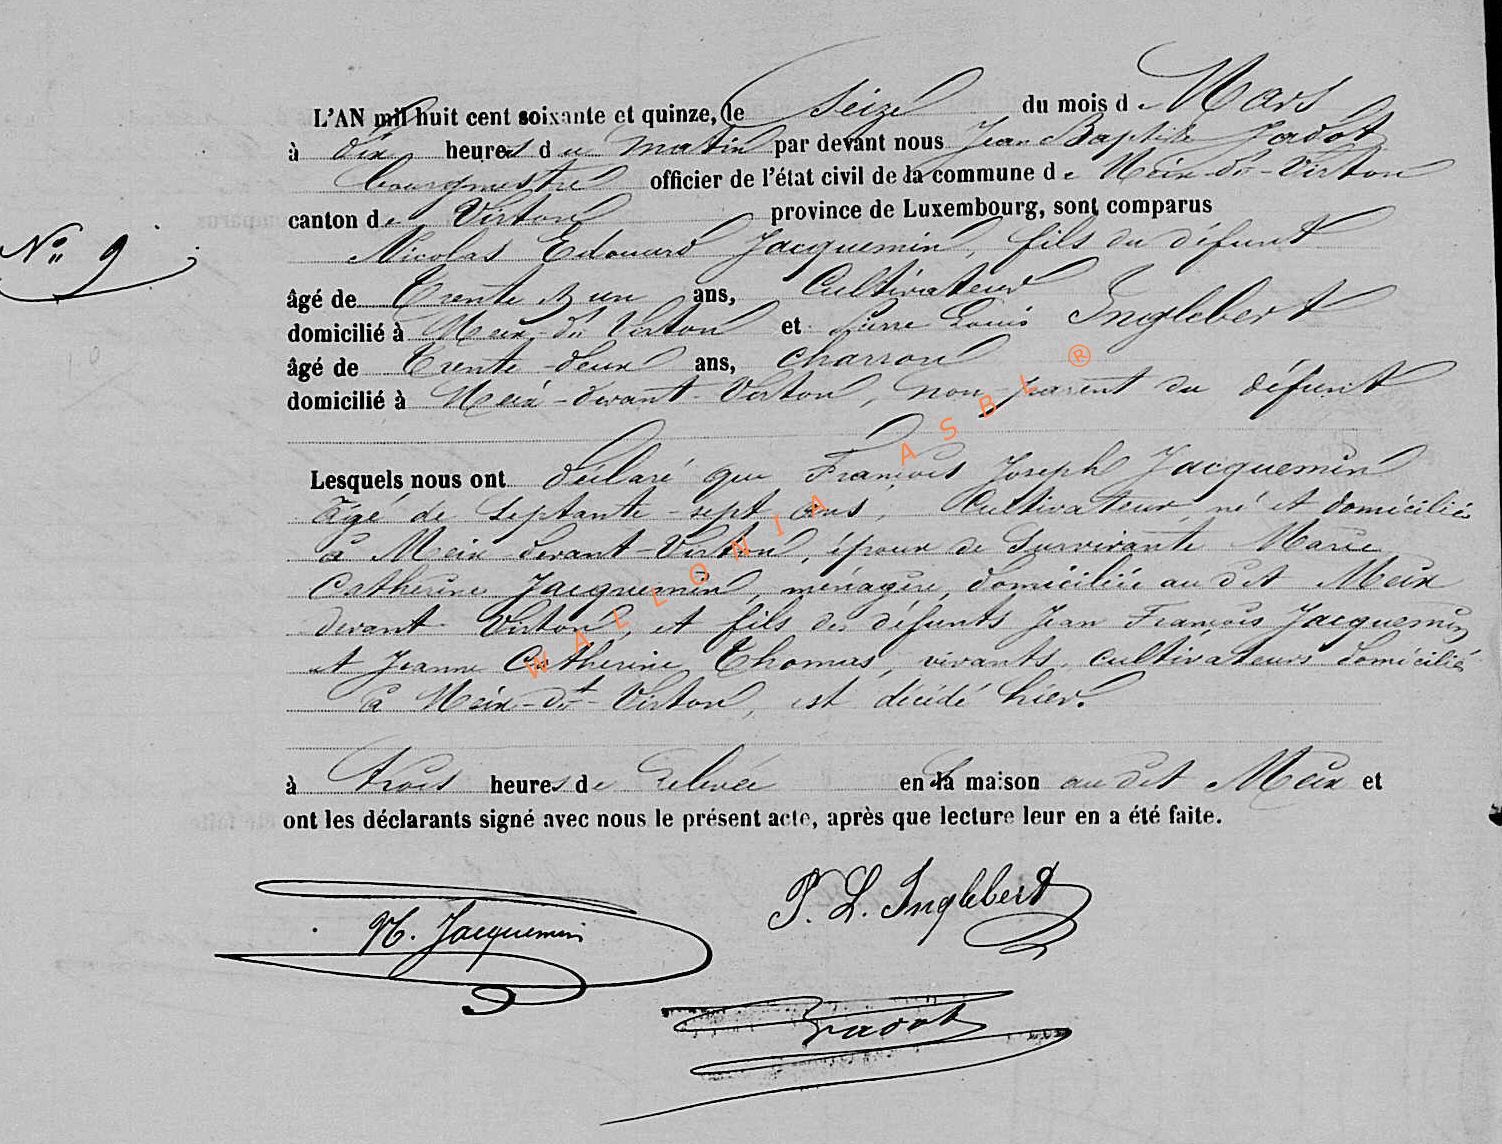 L'AN mil huit cent soixante et quinze, le Seize du mois de Mars
à dix heures du matin par devant nous Jean Baptiste Jadot
bourgmestre officier de l'état civil de la commune de Meix-dt-Virton
canton de Virton province de Luxembourg, sont comparus
N° 9
Nicolas Edouard Jacquemin, fils du défunt
âgé de Trente et un ans, Cultivateur
domicilié à Meix-dt Virton et Pierre Louis Inglebert
âgé de Trente deux ans, charron
domicilié à Meix-devant-Virton, non parent du défunt
Lesquels nous ont déclaré que François Joseph Jacquemin
âgé de septante-sept ans, Cultivateur, né et domicilié
à Meix devant-Virton, époux de survivante Marie
Catherine Jacquemin, ménagère, domiciliée au dit Meix
devant Virton, et fils des défunts Jean François Jacquemin
et Jeanne Catherine Thomas, vivants cultivateurs domicilié
à Meix-dt-Virton, est décédé hier.
à trois heures de relevée en sa maison au dit Meix et
ont les déclarants signé avec nous le présent acte, après que lecture leur en a été faite.
N. Jacquemin
P. L. Inglebert
Jadot
WALLONIA ASBL ®